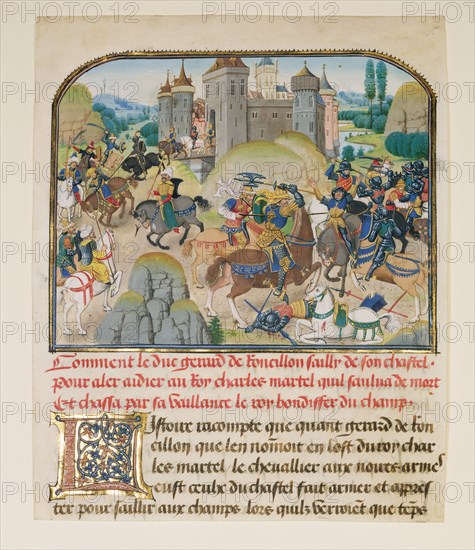 Comment le duc gerard de Roncillon sailly de son chastel.
Pour aler aidier au Roy charles martel quil saulua de mort
Et chassa par sa vaillance le roy bondiffer du champ.
Istoire racompte que quant gerard de ron
cillon que len nommoit en lost du roy char
les martel le chevallier aux noires armes
eust ceulx du chastel fait armer et appres
ter pour saillir aux champs lors quilz verroient que temps
PHOTO12